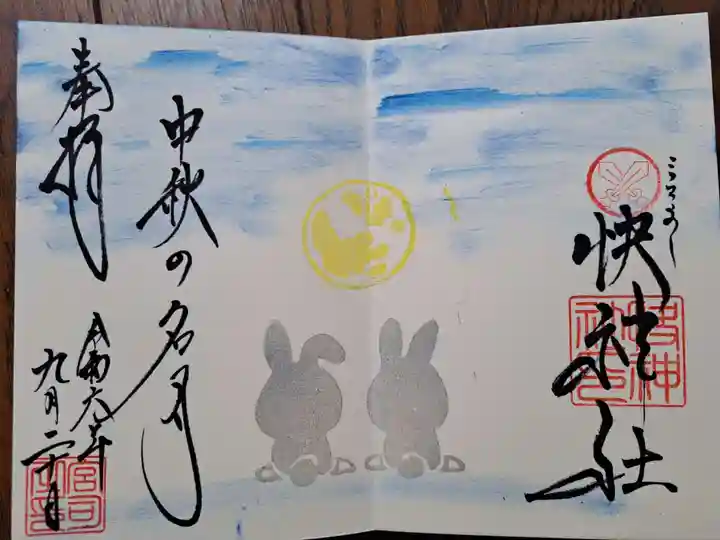 こころよし
快神社
中秋の名月
奉拝
令和六年
九月二十日
宮司之印